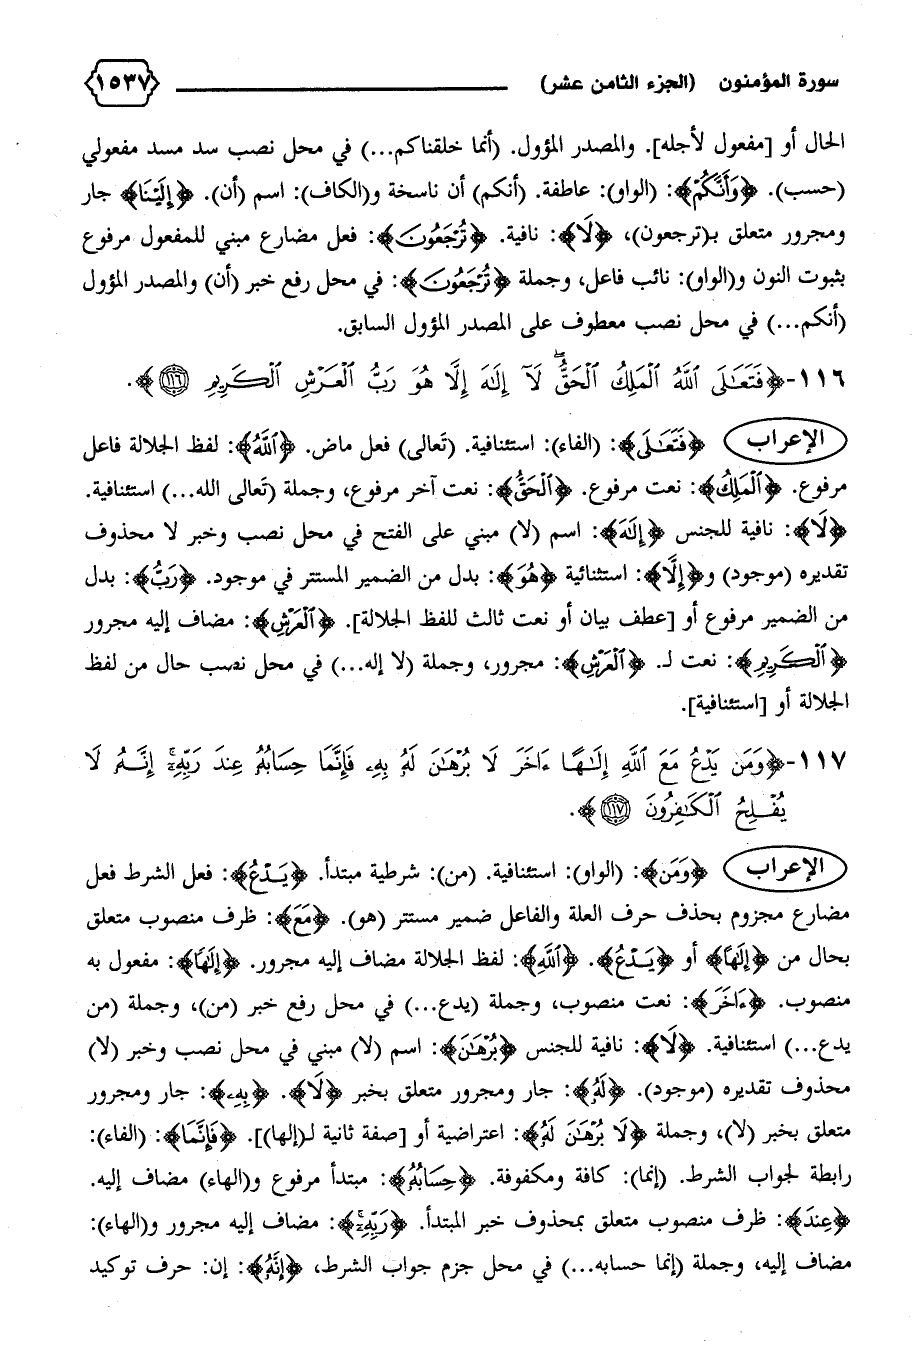 سورة المؤمنون (الجزء الثامن عشر) ١٥٣٧
الحال أو [مفعول لأجله]. والمصدر المؤول. (أنما خلقناكم...) في محل نصب سد مسد مفعولي
(حسب). ﴿وَأَنَّكُمْ﴾: (الواو): عاطفة. (أنكم) أن ناسخة و(الكاف): اسم (أن). ﴿إِلَيْنَا﴾ جار
ومجرور متعلق بـ(ترجعون)، ﴿لَا﴾: نافية. ﴿تُرْجَعُونَ﴾: فعل مضارع مبني للمفعول مرفوع
بثبوت النون و(الواو): نائب فاعل، وجملة ﴿تُرْجَعُونَ﴾: في محل رفع خبر (أن) والمصدر المؤول
(أنكم...) في محل نصب معطوف على المصدر المؤول السابق.
١١٦-﴿فَتَعَـٰلَى ٱللَّهُ ٱلْمَلِكُ ٱلْحَقُّ ۖ لَآ إِلَـٰهَ إِلَّا هُوَ رَبُّ ٱلْعَرْشِ ٱلْكَرِيمِ ١١٦﴾.
الإعراب ﴿فَتَعَـٰلَى﴾: (الفاء): استئنافية. (تَعالى) فعل ماض. ﴿ٱللَّهُ﴾: لفظ الجلالة فاعل
مرفوع. ﴿ٱلْمَلِكُ﴾: نعت مرفوع. ﴿ٱلْحَقُّ﴾: نعت آخر مرفوع، وجملة (تَعالى الله...) استئنافية.
﴿لَا﴾: نافية للجنس ﴿إِلَـٰهَ﴾: اسم (لا) مبني على الفتح في محل نصب وخبر لا محذوف
تقديره (موجود) و﴿إِلَّا﴾: استثنائية ﴿هُوَ﴾: بدل من الضمير المستتر في موجود. ﴿رَبُّ﴾: بدل
من الضمير مرفوع أو [عطف بيان أو نعت ثالث للفظ الجلالة]. ﴿ٱلْعَرْشِ﴾: مضاف إليه مجرور
﴿ٱلْكَرِيمِ﴾: نعت لـ. ﴿ٱلْعَرْشِ﴾: مجرور، وجملة (لا إله...) في محل نصب حال من لفظ
الجلالة أو [استئنافية].
١١٧-﴿وَمَن يَدْعُ مَعَ ٱللَّهِ إِلَـٰهًا ءَاخَرَ لَا بُرْهَـٰنَ لَهُۥ بِهِۦ فَإِنَّمَا حِسَابُهُۥ عِندَ رَبِّهِۦٓ إِنَّهُۥ لَا
يُفْلِحُ ٱلْكَـٰفِرُونَ ١١٧﴾.
الإعراب ﴿وَمَن﴾: (الواو): استئنافية. (من): شرطية مبتدأ. ﴿يَدْعُ﴾: فعل الشرط فعل
مضارع مجزوم بحذف حرف العلة والفاعل ضمير مستتر (هو). ﴿مَعَ﴾: ظرف منصوب متعلق
بحال من ﴿إِلَـٰهًا﴾ أو ﴿يَدْعُ﴾. ﴿ٱللَّهِ﴾: لفظ الجلالة مضاف إليه مجرور. ﴿إِلَـٰهًا﴾: مفعول به
منصوب. ﴿ءَاخَرَ﴾: نعت منصوب، وجملة (يدع...) في محل رفع خبر (من)، وجملة (من
يدع...) استئنافية. ﴿لَا﴾: نافية للجنس ﴿بُرْهَـٰنَ﴾: اسم (لا) مبني في محل نصب وخبر (لا)
محذوف تقديره (موجود). ﴿لَهُۥ﴾: جار ومجرور متعلق بخبر ﴿لَا﴾. ﴿بِهِۦ﴾: جار ومجرور
متعلق بخبر (لا)، وجملة ﴿لَا بُرْهَـٰنَ لَهُۥ﴾: اعتراضية أو [صفة ثانية لـ(إلها)]. ﴿فَإِنَّمَا﴾: (الفاء):
رابطة لجواب الشرط. (إنما): كافة ومكفوفة. ﴿حِسَابُهُۥ﴾: مبتدأ مرفوع و(الهاء) مضاف إليه.
﴿عِندَ﴾: ظرف منصوب متعلق بمحذوف خبر المبتدأ. ﴿رَبِّهِۦٓ﴾: مضاف إليه مجرور و(الهاء):
مضاف إليه، وجملة (إنما حسابه...) في محل جزم جواب الشرط، ﴿إِنَّهُۥ﴾: إن: حرف توكيد